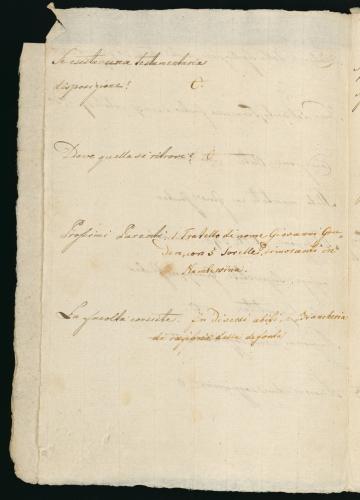 Se esista una testamentaria
disposizione? O.
Dove quella si ritrova? O.
Prossimi Parenti. 1 Fratello di nome Giovanni
con 3 Sorelle, dimoranti in
La facoltà consiste. In Diversi abiti, e Biancheria
di ragione della defonta